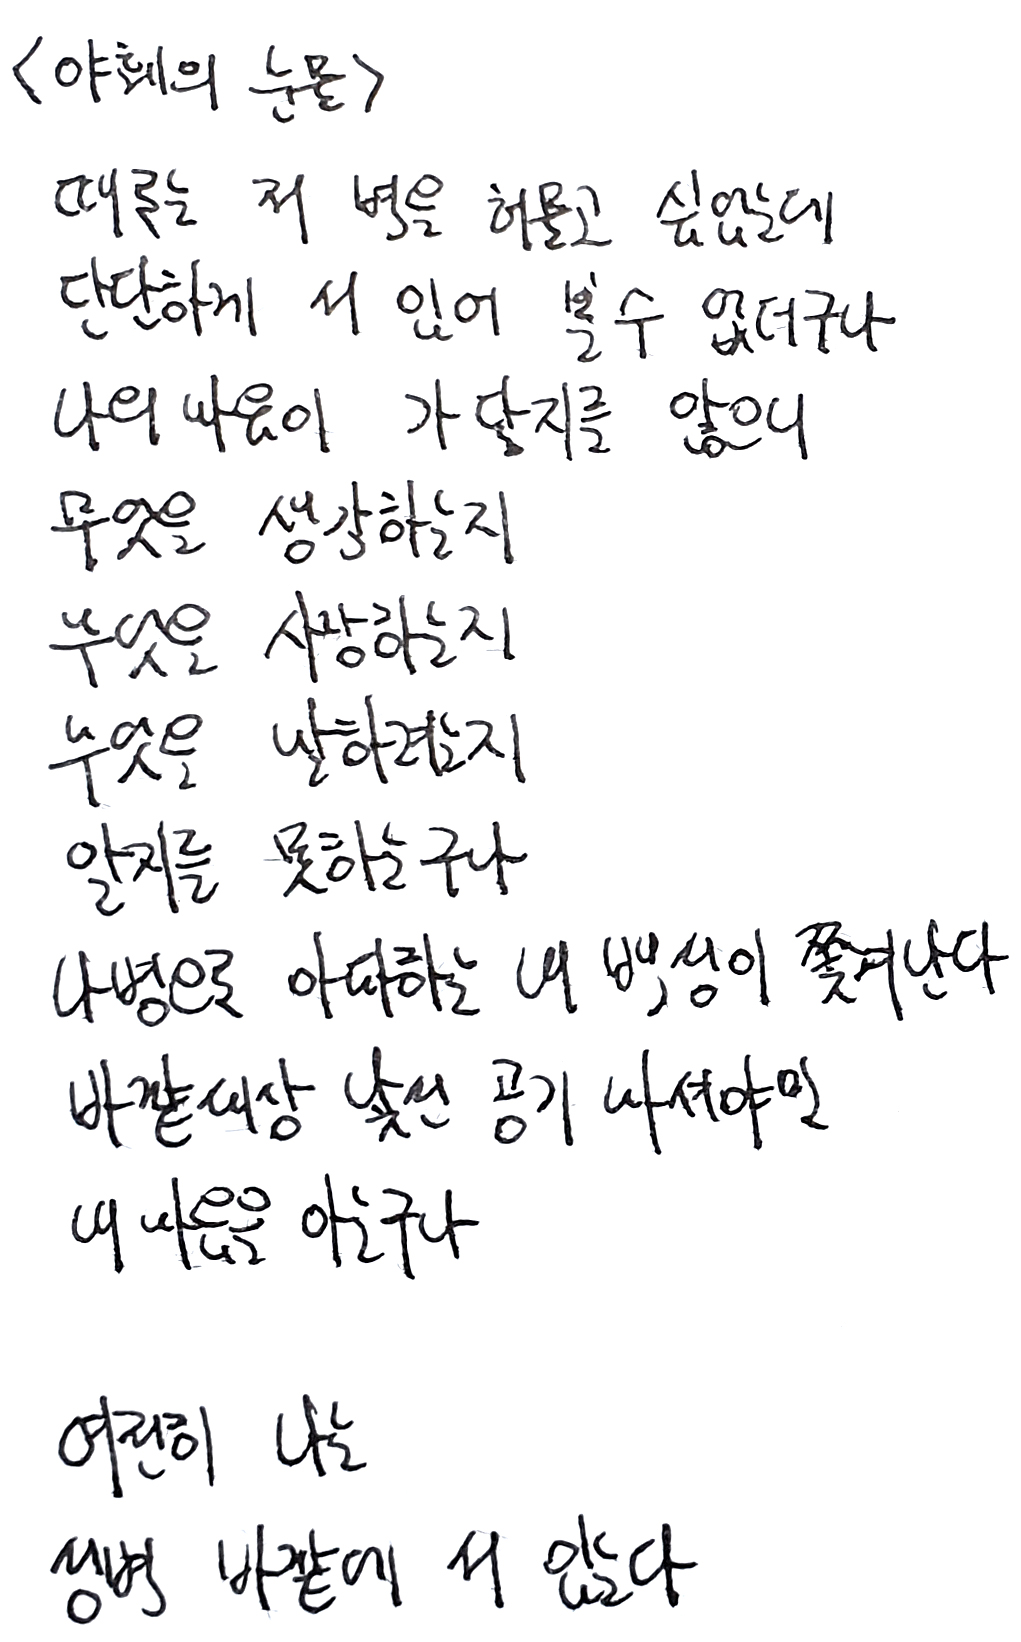 <야훼의 눈물>
때로는 저 벽을 허물고 싶었는데
단단하게 서 있어 볼 수 없더구나
나의 마음이 가 닿지를 않으니
무엇을 생각하는지
무엇을 사랑하는지
무엇을 말하려는지
알지를 못하는구나
나병으로 아파하는 내 백성이 쫓겨난다
바깥세상 낯선 공기 마셔야만
내 마음을 아는구나
여전히 나는
성벽 바깥에 서 있는다